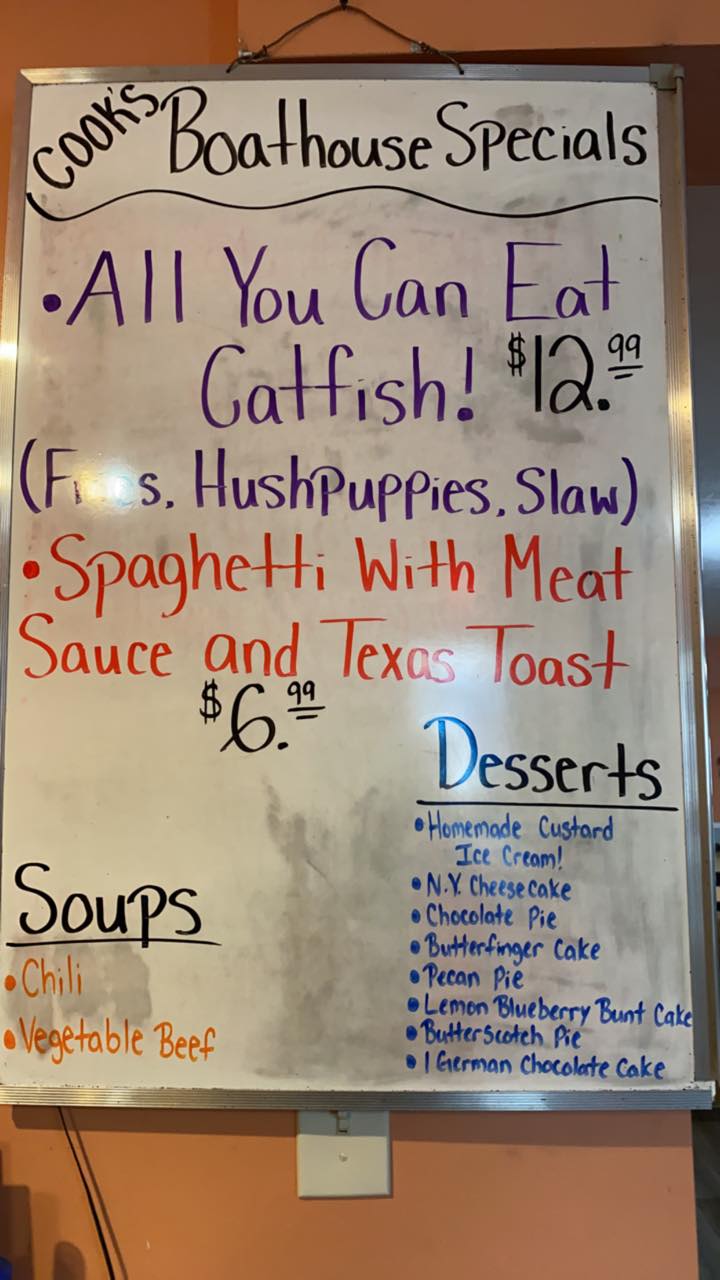 COOK'S Boathouse Specials
• All You Can Eat
Catfish! $12.99
(Fries, HushPuppies, Slaw)
• Spaghetti With Meat
Sauce and Texas Toast
$6.99
Desserts
• Homemade Custard
Ice Cream!
• N.Y. Cheesecake
• Chocolate Pie
• Butterfinger Cake
• Pecan Pie
• Lemon Blueberry Bunt Cake
• Butterscotch Pie
• 1 German Chocolate Cake
Soups
• Chili
• Vegetable Beef